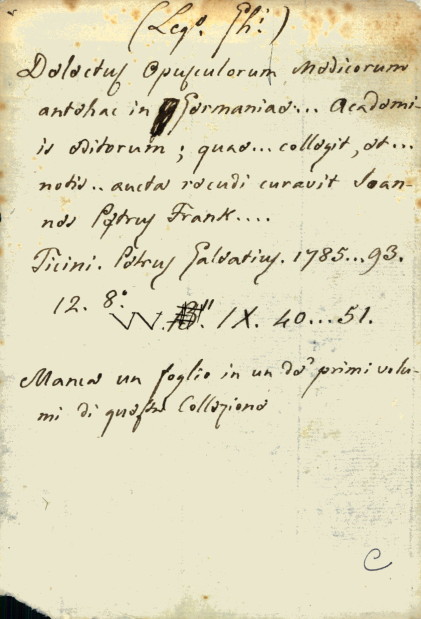 (Leg.º Gh.i)
Delectus Opusculorum Medicorum
antehac in Germaniae... Academi-
is editorum; quae... collegit, et...
notis.. aucta recudi curavit Ioan-
nes Petrus Frank....
Ticini. Petrus Galeatius. 1785...93.
12. 8.º
VV. IX. 40...51.
Manca un foglio in un de' primi volu-
mi di questa Collezione
C